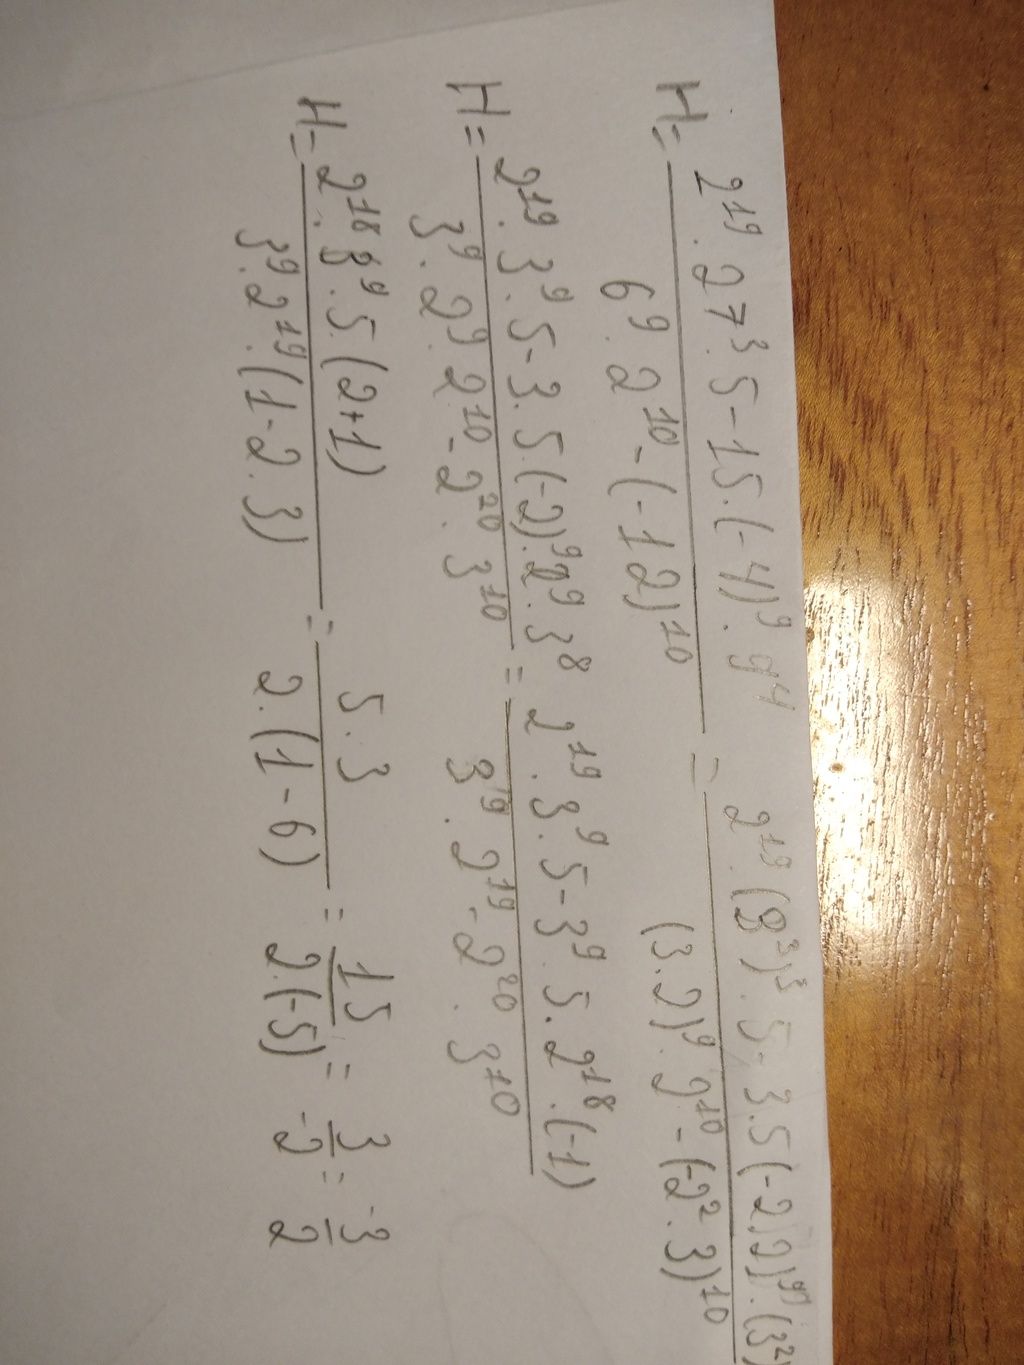 H = \frac{2^{19} \cdot 27^3 \cdot 5 - 15 \cdot (-4)^9 \cdot 9^4}{6^9 \cdot 2^{10} - (-12)^{10}} = \frac{2^{19} \cdot (3^3)^3 \cdot 5 - 3 \cdot 5 (-2 \cdot 2)^9 \cdot (3^2)}{(3 \cdot 2)^9 \cdot 2^{10} - (-2^2 \cdot 3)^{10}}
H = \frac{2^{19} \cdot 3^9 \cdot 5 - 3 \cdot 5 \cdot (-2)^9 \cdot 2^9 \cdot 3^8}{3^9 \cdot 2^9 \cdot 2^{10} - 2^{20} \cdot 3^{10}} = \frac{2^{19} \cdot 3^9 \cdot 5 - 3^9 \cdot 5 \cdot 2^{18} \cdot (-1)}{3^9 \cdot 2^{19} - 2^{20} \cdot 3^{10}}
H = \frac{2^{18} \cdot 3^9 \cdot 5 \cdot (2+1)}{3^9 \cdot 2^{19} \cdot (1 - 2 \cdot 3)} = \frac{5 \cdot 3}{2 \cdot (1 - 6)} = \frac{15}{2 \cdot (-5)} = \frac{3}{-2} = \frac{-3}{2}